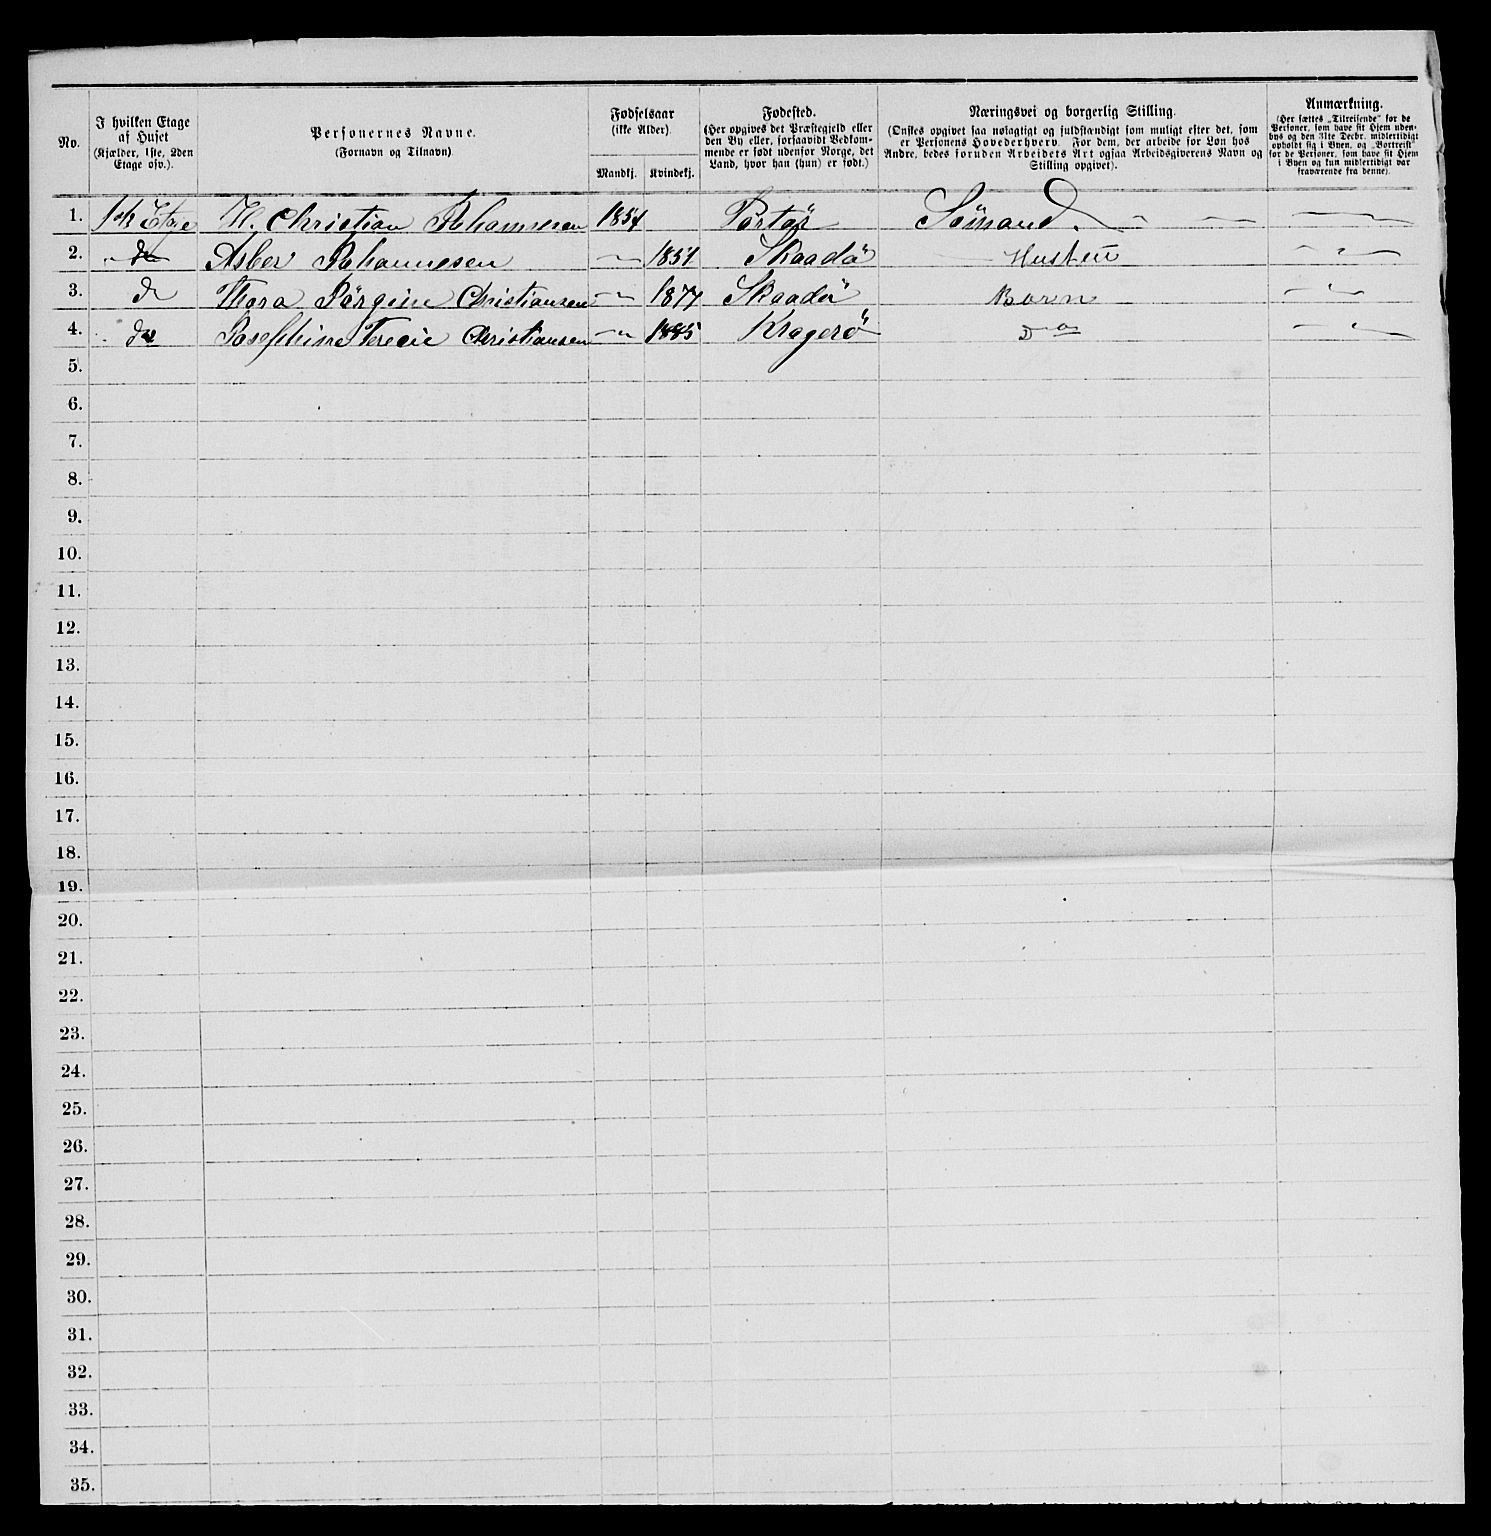 No.
I hvilken Etage
af Huset
(Kjælder, 1ste, 2den
Etage osv.).
Personernes Navne.
(Fornavn og Tilnavn)
Fødselsaar
(ikke Alder)
Mandkj.
Kvindekj.
Fødested.
(Her opgives det Præstegjeld eller
den By eller, forsaavidt Vedkom-
mende er født udenfor Norge, det
Land, hvor han (hun) er født.)
Næringsvei og borgerlig Stilling.
(Ønskes opgivet saa nøiagtigt og fuldstændigt som muligt efter det, som
er Personens Hovederhverv. For dem, der arbeide for Løn hos
Andre, bedes foruden Arbeidets Art ogsaa Arbeidsgiverens Navn og
Stilling opgivet).
Anmærkning.
(Her sættes „Tilreisende“ for de
Personer, som have sit Hjem uden-
bys og den 31te Decbr. midlertidigt
opholdt sig i Byen, og „Bortreist“
for de Personer, som have sit Hjem
i Byen og kun midlertidigt var
fraværende fra denne).
1. 1ste Etage H. Christian Johannesen 1854 Portør Sömand.
2. do Johannesen 1851 Skaadö Hustru
3. do Thora Jörgine Christiansen 1877 Skaadö Barn
4. do Josephine Christiansen 1885 Kragerö Do
5.
6.
7.
8.
9.
10.
11.
12.
13.
14.
15.
16.
17.
18.
19.
20.
21.
22.
23.
24.
25.
26.
27.
28.
29.
30.
31.
32.
33.
34.
35.